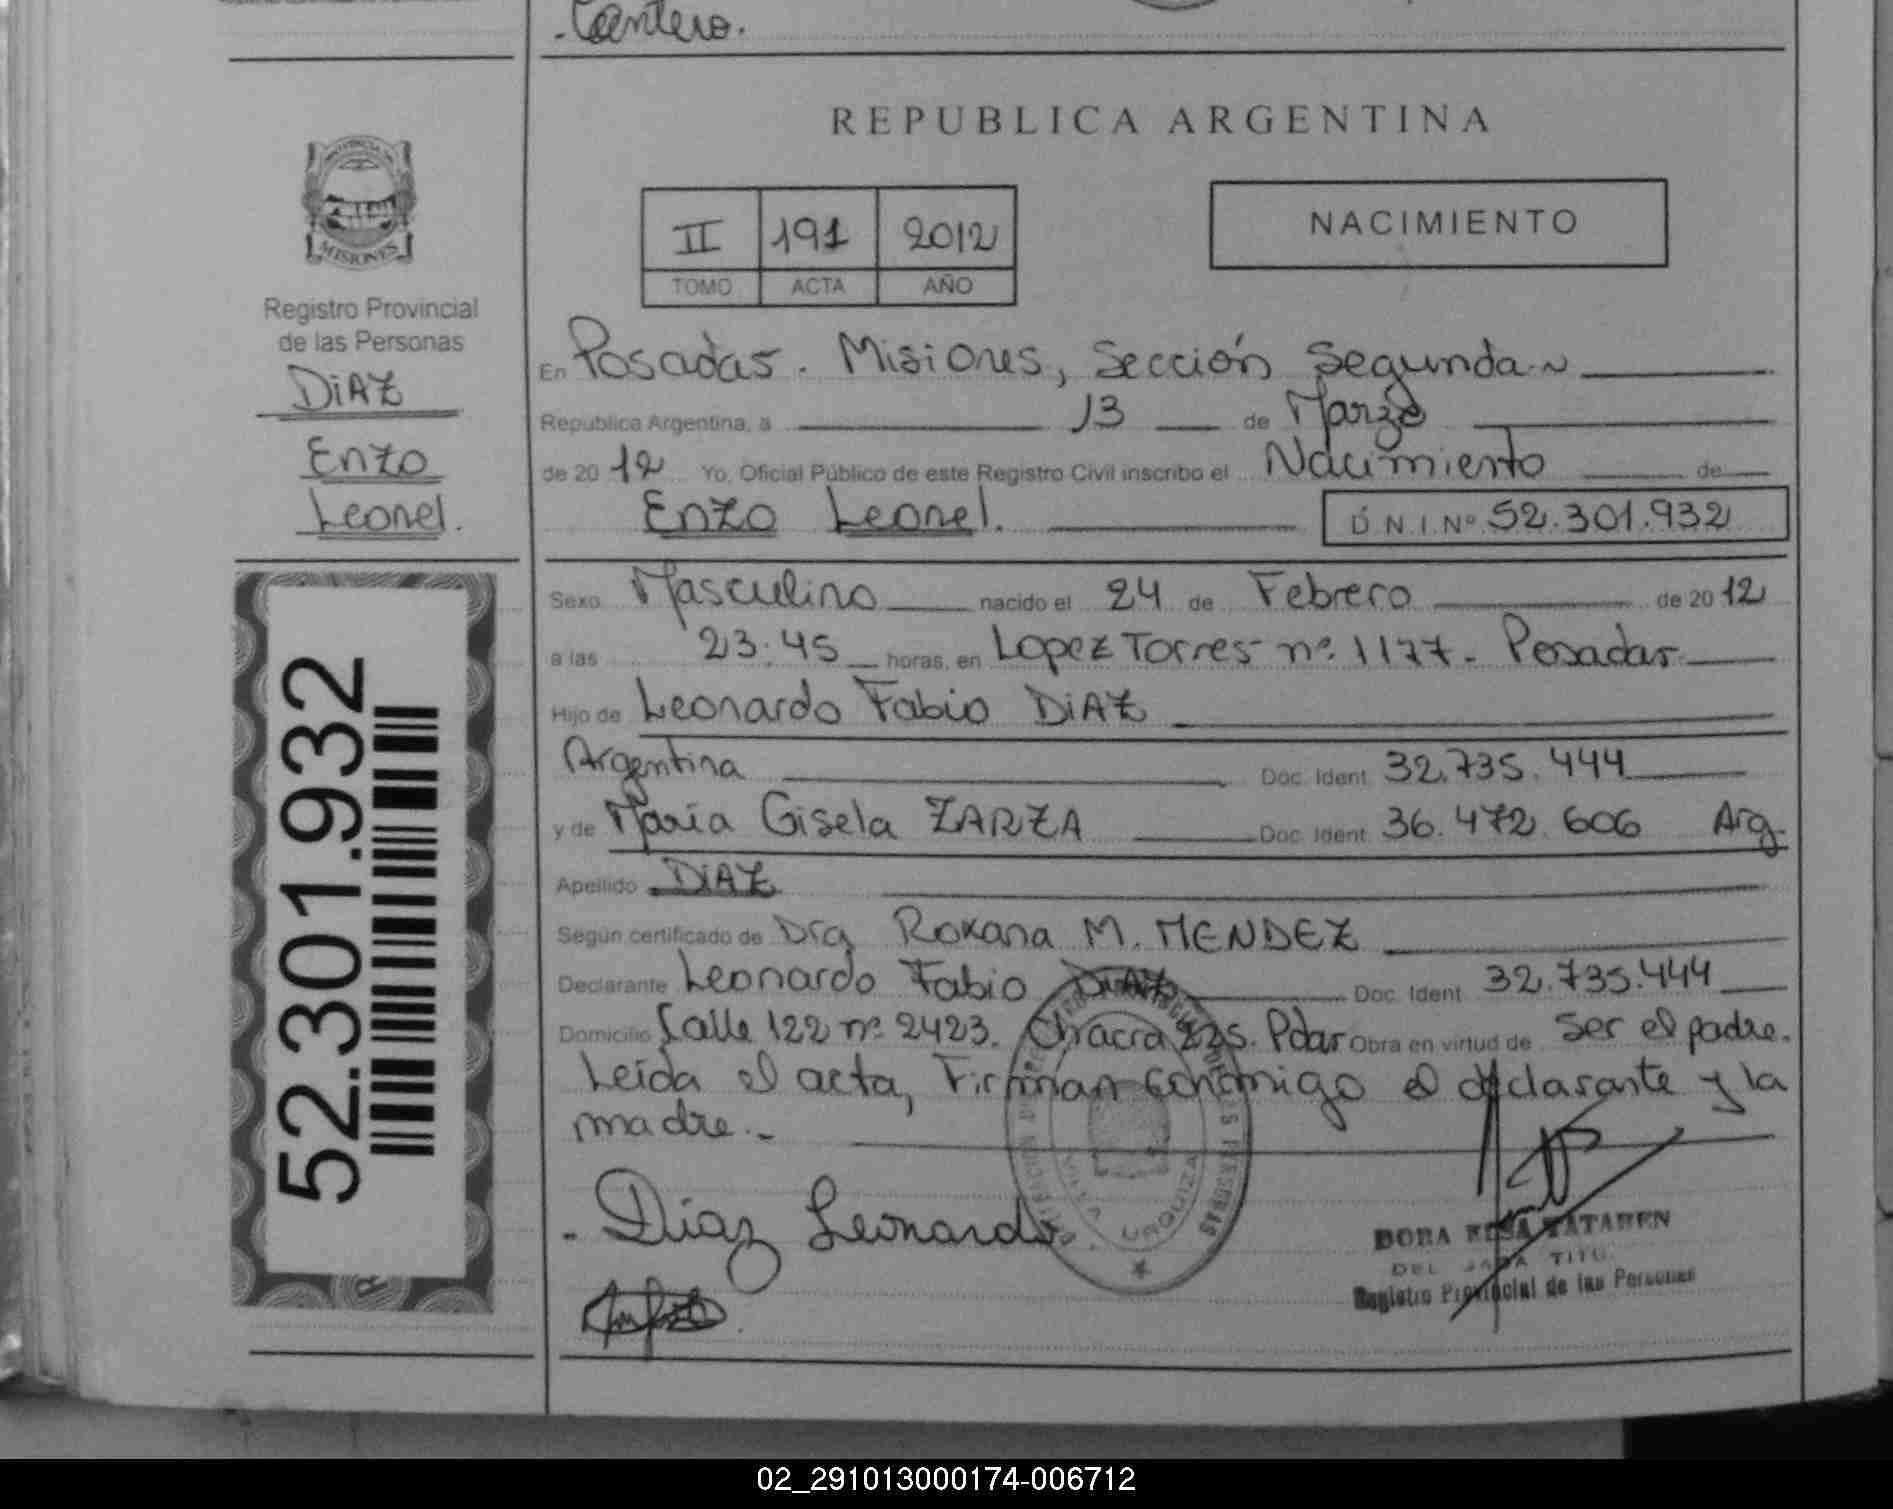 - Cantero.
REPUBLICA ARGENTINA
MISIONES
II 191 2012
TOMO ACTA AÑO
NACIMIENTO
Registro Provincial
de las Personas
DIAZ
Enzo
Leonel.
52.301.932
En Posadas. Misiones, Sección Segunda.~
Republica Argentina, a 13 de Marzo
de 20 12 Yo, Oficial Público de este Registro Civil inscribo el Nacimiento de
Enzo Leonel. D.N.I.Nº 52.301.932
Sexo Masculino nacido el 24 de Febrero de 20 12
a las 23:45 horas, en Lopez Torres nº 1177 - Posadas
Hijo de Leonardo Fabio DIAZ
Argentina Doc. Ident. 32.735.444
y de María Gisela ZARZA Doc. Ident. 36.472.606 Arg.
Apellido DIAZ
Según certificado de Dra Roxana M. MENDEZ
Declarante Leonardo Fabio DIAZ Doc. Ident. 32.735.444
Domicilio Calle 122 nº 2423. Chacra 225. Pdas Obra en virtud de ser el padre.
Leída el acta, Firman conmigo el declarante y la
madre.-
- Díaz Leonardo
URQUIZA
DORA
Registro Provincial de las Personas
02_291013000174-006712